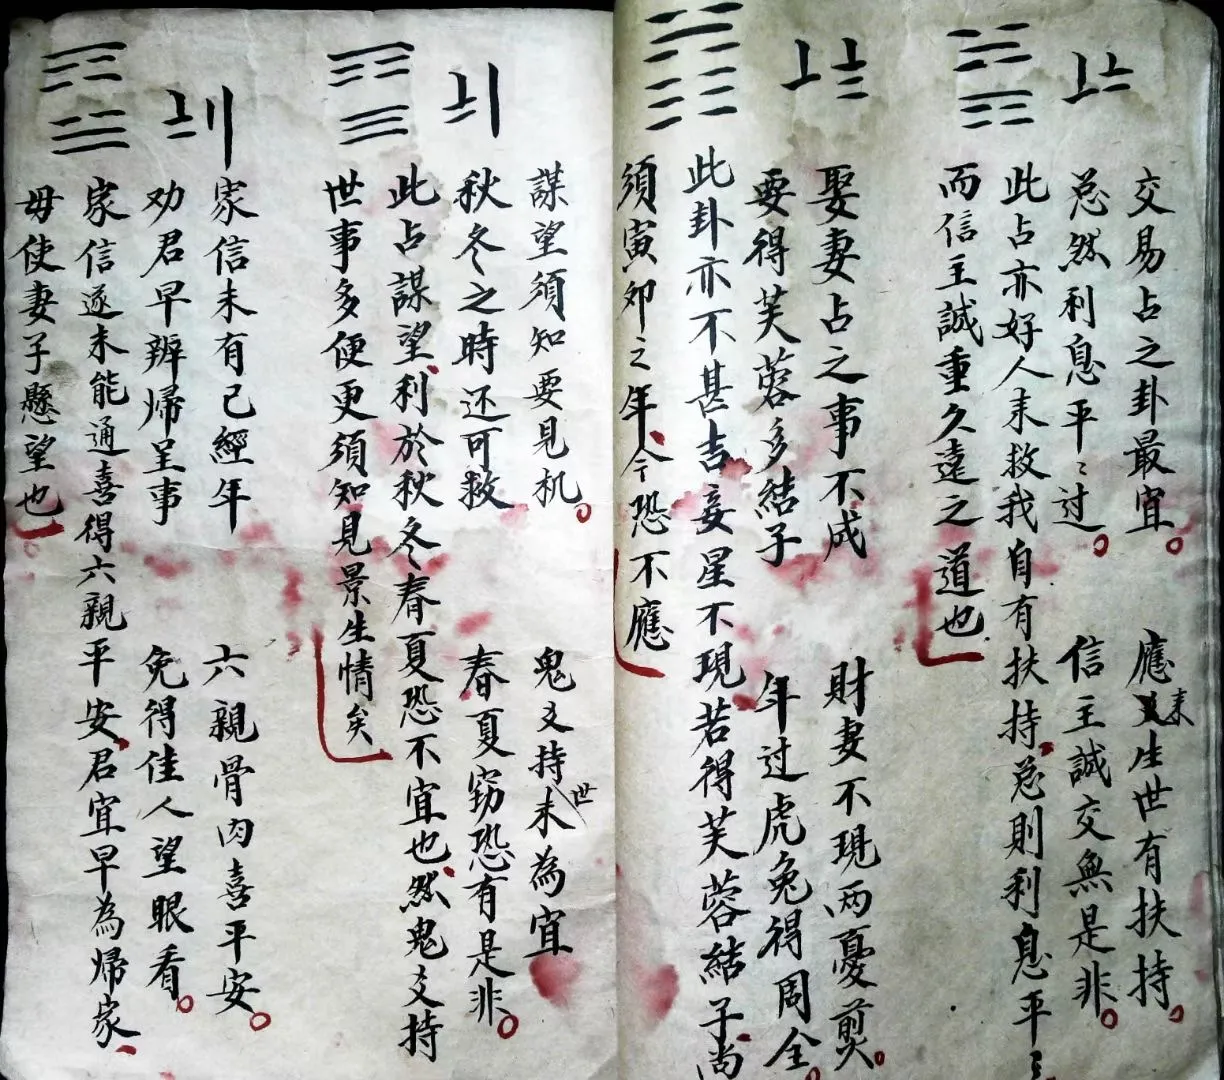 交易占之卦最宜　應来生世有扶持
忩然利息平〻过　信主誠交無是非
此占亦好人来救我自有扶持忩則利息平〻
而信主誠重久遠之道也
娶妻占之事不成　財妻不現两憂煎
要得芙蓉多結子　年过虎兔得周全
此卦亦不甚吉妄星不現若得芙蓉結子尚
須寅卯之年今恐不應
謀望須知要見机　鬼爻持世未為宜
秋冬之時还可救　春夏窈恐有是非
此占謀望利於秋冬春夏恐不宜也然鬼爻持
世事多便更須知見景生情矣
家信未有已經年　六親骨肉喜平安
劝君早辦帰呈事　免得佳人望眼看
家信遂未能通喜得六親平安君宜早為帰家
毋使妻子懸望也